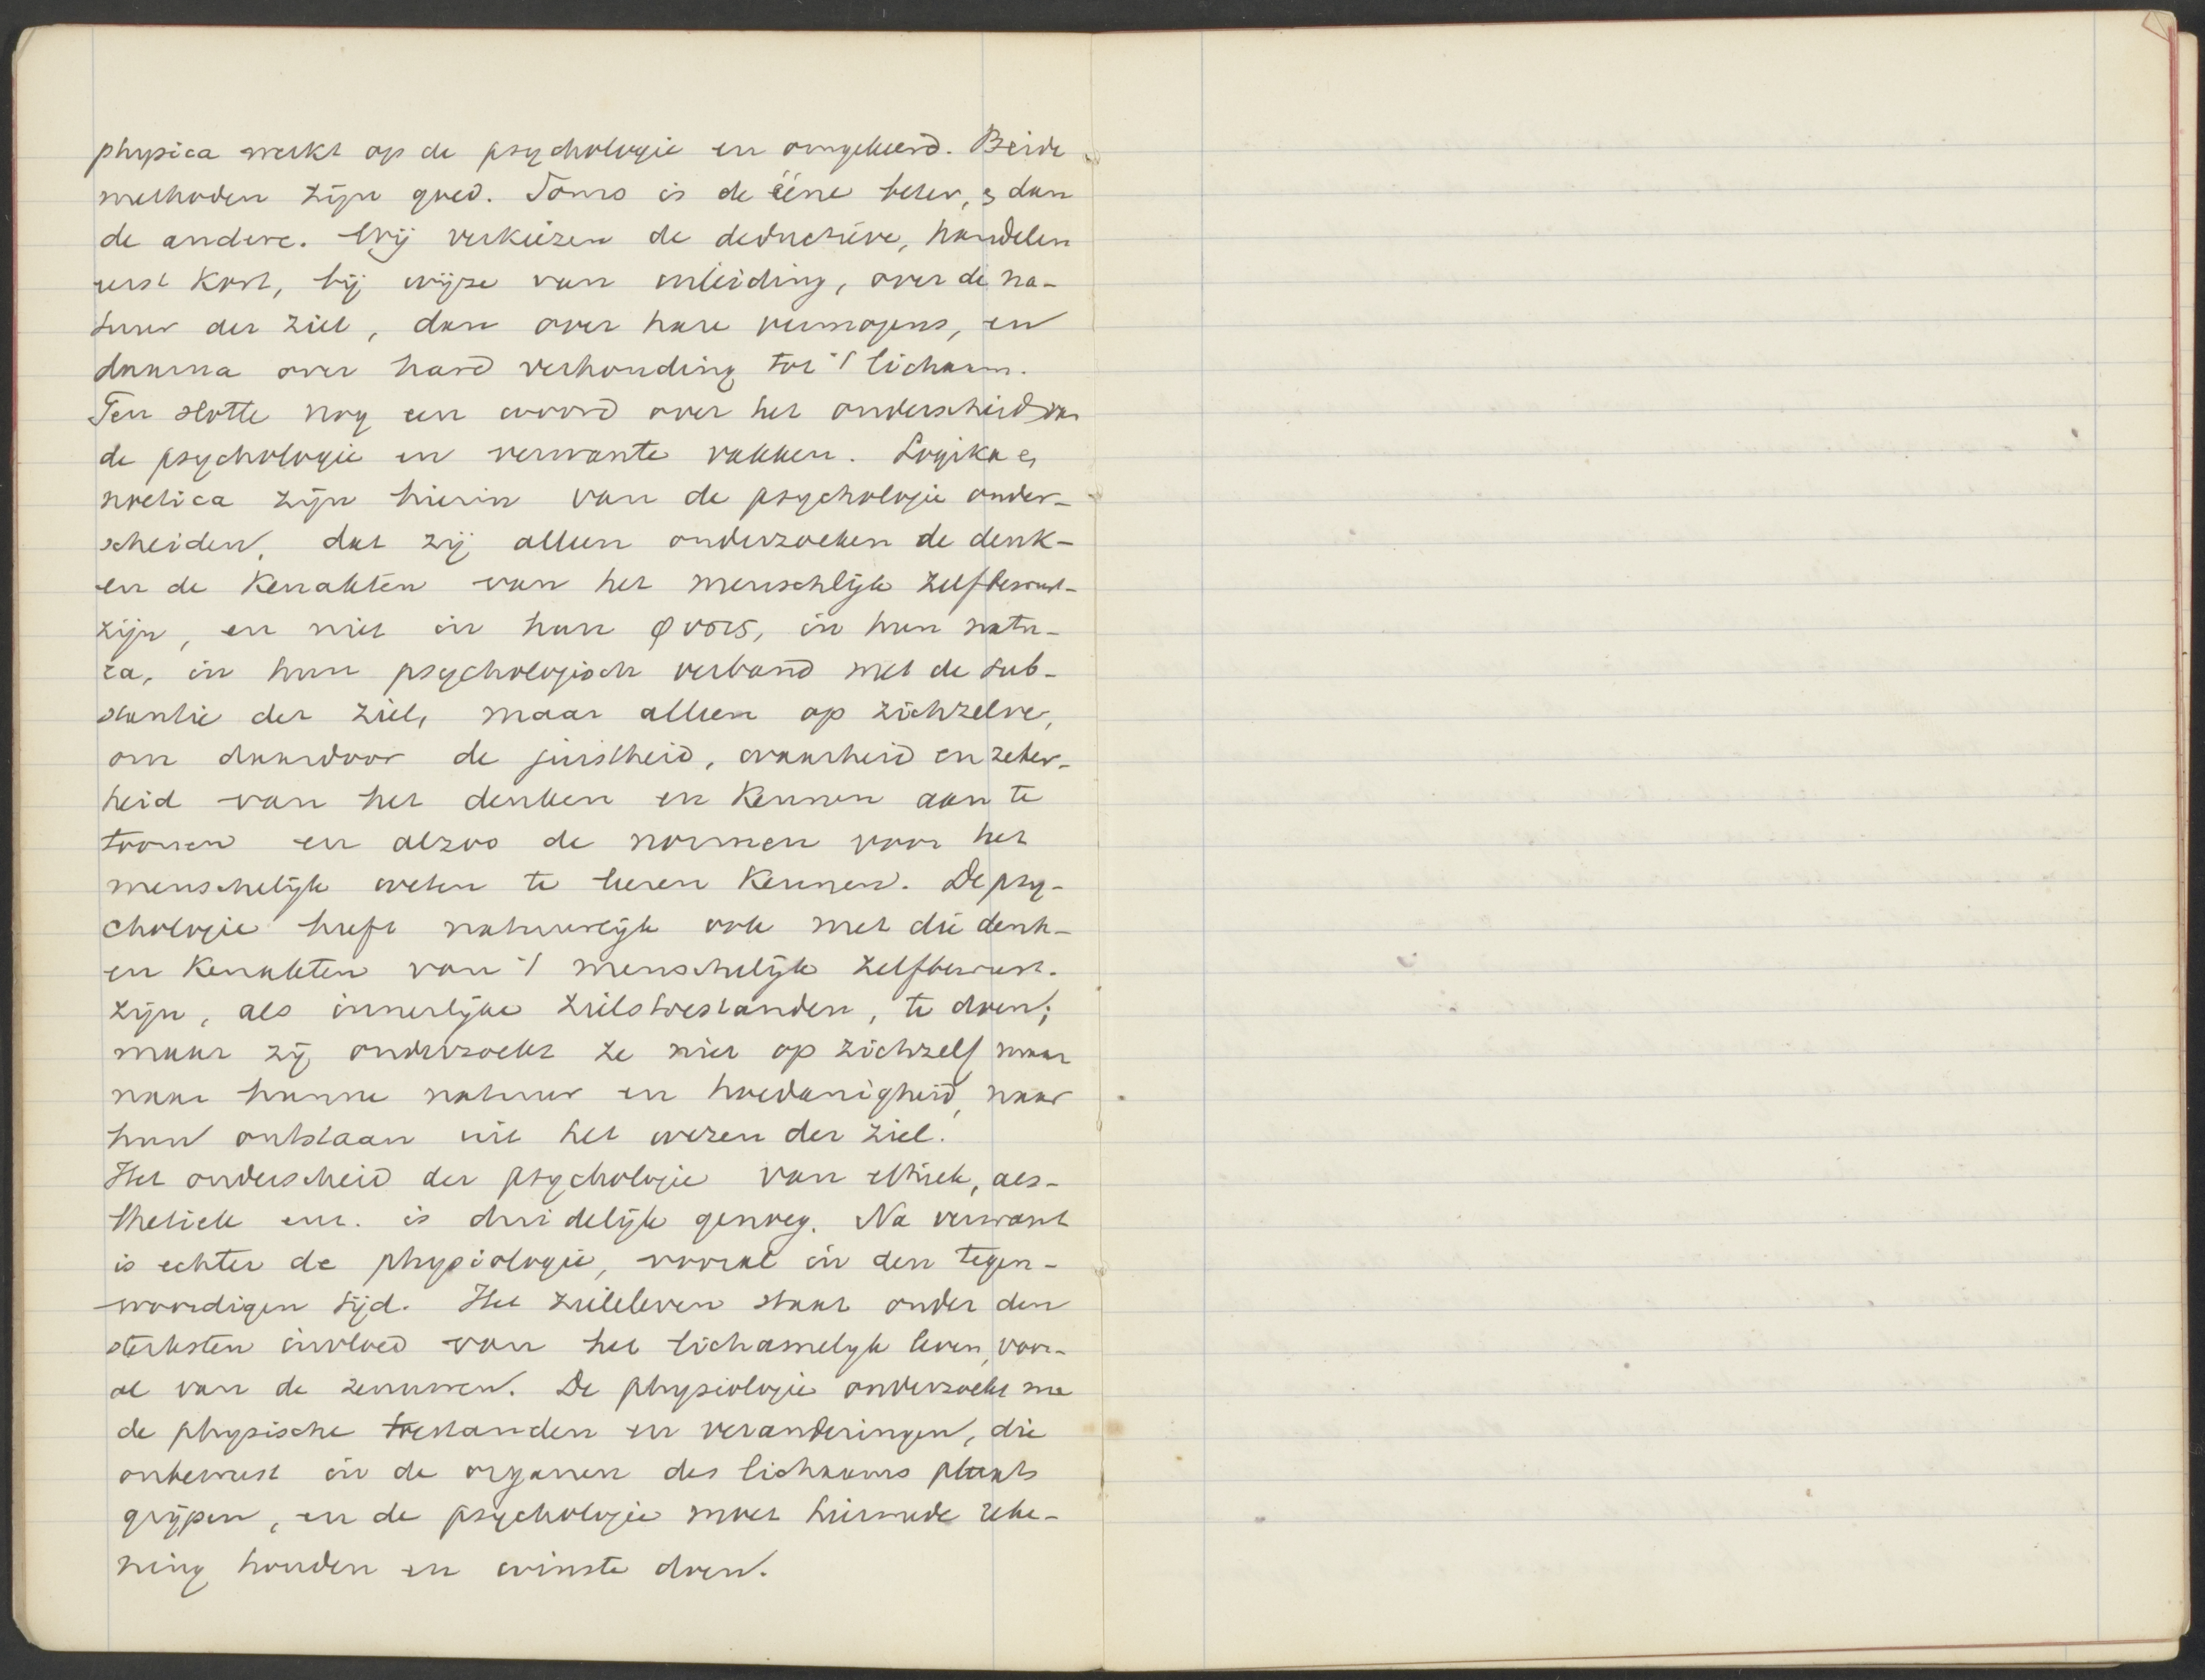 physica werkt op de psychologie en omgekeerd. Beide
methoden zijn goed. Soms is de ééne beter, s dan
de andere. Wij verkiezen de deductieve, handelen
eerst kort, bij wijze van inleiding, over de na-
tuur der ziel, dan over hare vermogens, en
daarna over hare verhouding tot 't lichaam.
Ten slotte nog een woord over het onderscheid van
de psychologie en verwante vakken. Logika en
noetica zijn hierin van de psychologie onder-
scheiden, dat zij alleen onderzoeken de denk-
en de kenakten van het menschlijk zelfbewust-
zijn, en niet in hun φυσις, in hun natu-
ra, in hun psychologisch verband met de sub-
stantie der ziel, maar alleen op zichzelve,
om daardoor de juistheid, waarheid en zeker-
heid van het denken en kennen aan te
toonen en alzoo de normen voor het
menschelijk weten te leeren kennen. De psy-
chologie heeft natuurlijk ook met die denk-
en kenakten van 't menschelijk zelfbewust-
zijn, als innerlijke zielstoestanden, te doen;
maar zij onderzoekt ze niet op zichzelf maar
naar hunne natuur en hoedanigheid, naar
hun ontstaan uit het wezen der ziel.
Het onderscheid der psychologie van ethiek, aes-
thetiek enz. is duidelijk genoeg. Na verwant
is echter de physiologie, vooral in den tegen-
woordigen tijd. Het zieleleven staat onder den
sterksten invloed van het lichamelijk leven, voor-
al van de zenuwen. De physiologie onderzoekt nu
de physische toestanden en veranderingen, die
onbewust in de organen des lichaams plaats
grijpen, en de psychologie moet hiermede reke-
ning houden en winste doen.